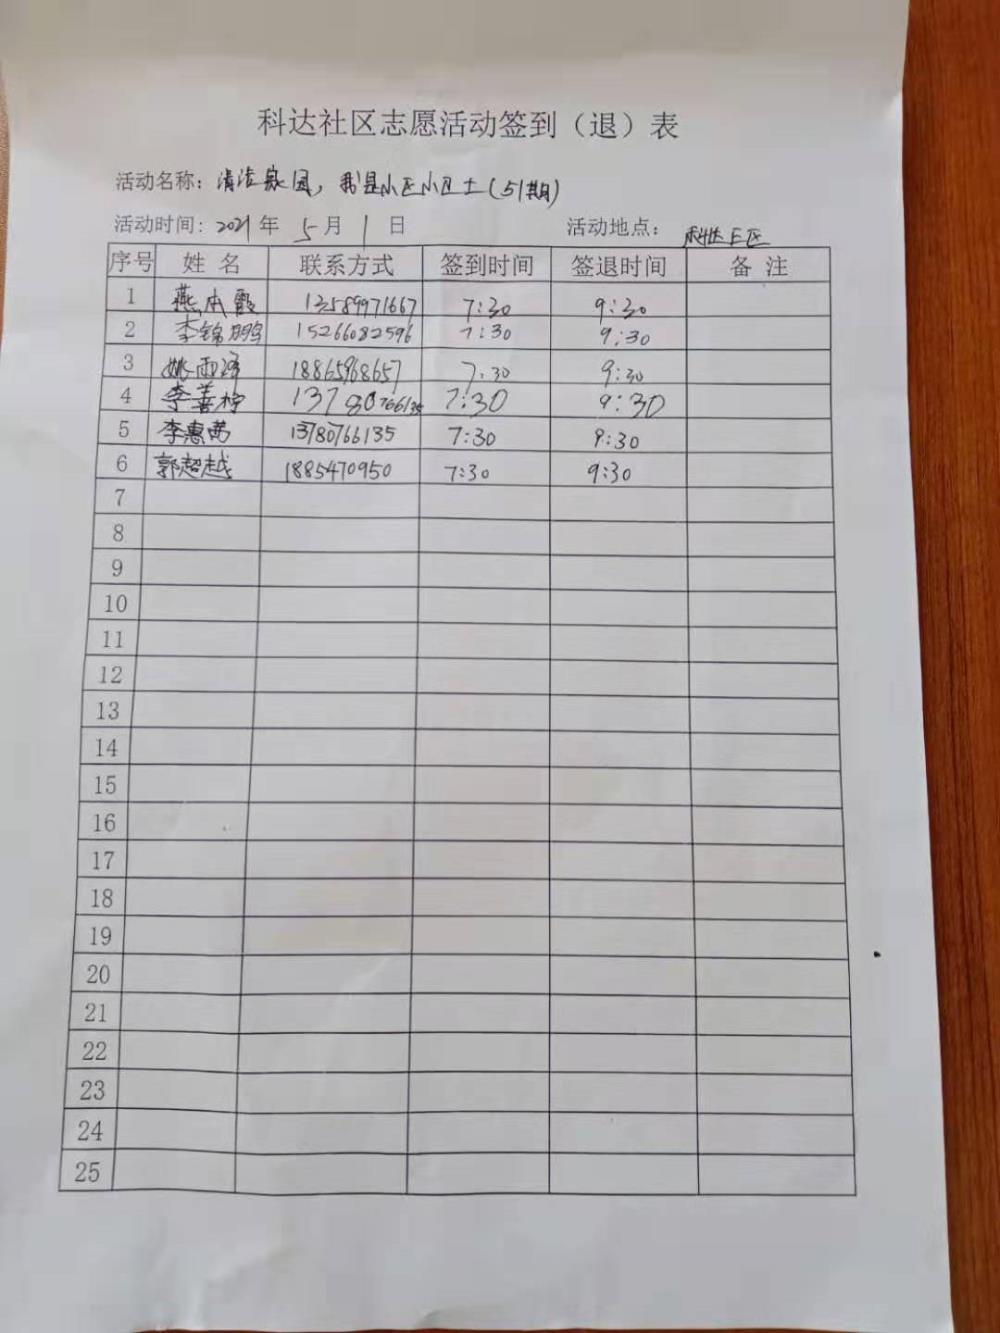 科达社区志愿活动签到（退）表
活动名称：清洁家园，我是小区小卫士(51期)
活动时间：2021年 5月 1日 活动地点：科达社区
序号 姓名 联系方式 签到时间 签退时间 备注
1 燕本霞 13589971667 7:30 9:30
2 李锦鹏 15266082596 7:30 9:30
3 姚雨 18865968657 7:30 9:30
4 李善柠 13780766135 7:30 9:30
5 李惠茜 13780766135 7:30 9:30
6 郭超越 1885470950 7:30 9:30
7
8
9
10
11
12
13
14
15
16
17
18
19
20
21
22
23
24
25